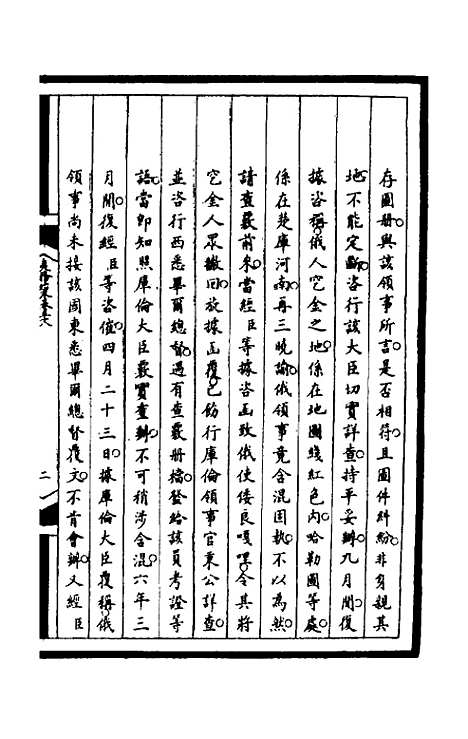 存圖冊與該領事所言是否相符且圖件糾紛非身親其
地不能定斷咨行該大臣切實詳查持平妥辦九月間復
據咨稱俄人空金之地係在地圖綫紅色內哈勒圖等處
係在楚庫河南再三曉諭俄領事竟含混固執不以為然
請查覈前來當經臣等據咨函致俄使倭良嘎哩令其將
空金人眾撤回旋據函覆已飭行庫倫領事官秉公詳查
並咨行西悉畢爾總督遇有查覈冊檔發給該員考證等
語當即知照庫倫大臣覈實查辦不可稍涉含混六年三
月間復經臣等咨催四月二十三日據庫倫大臣覆稱俄
領事尚未接該國東悉畢爾總督覆文不肯會辦又經臣
二